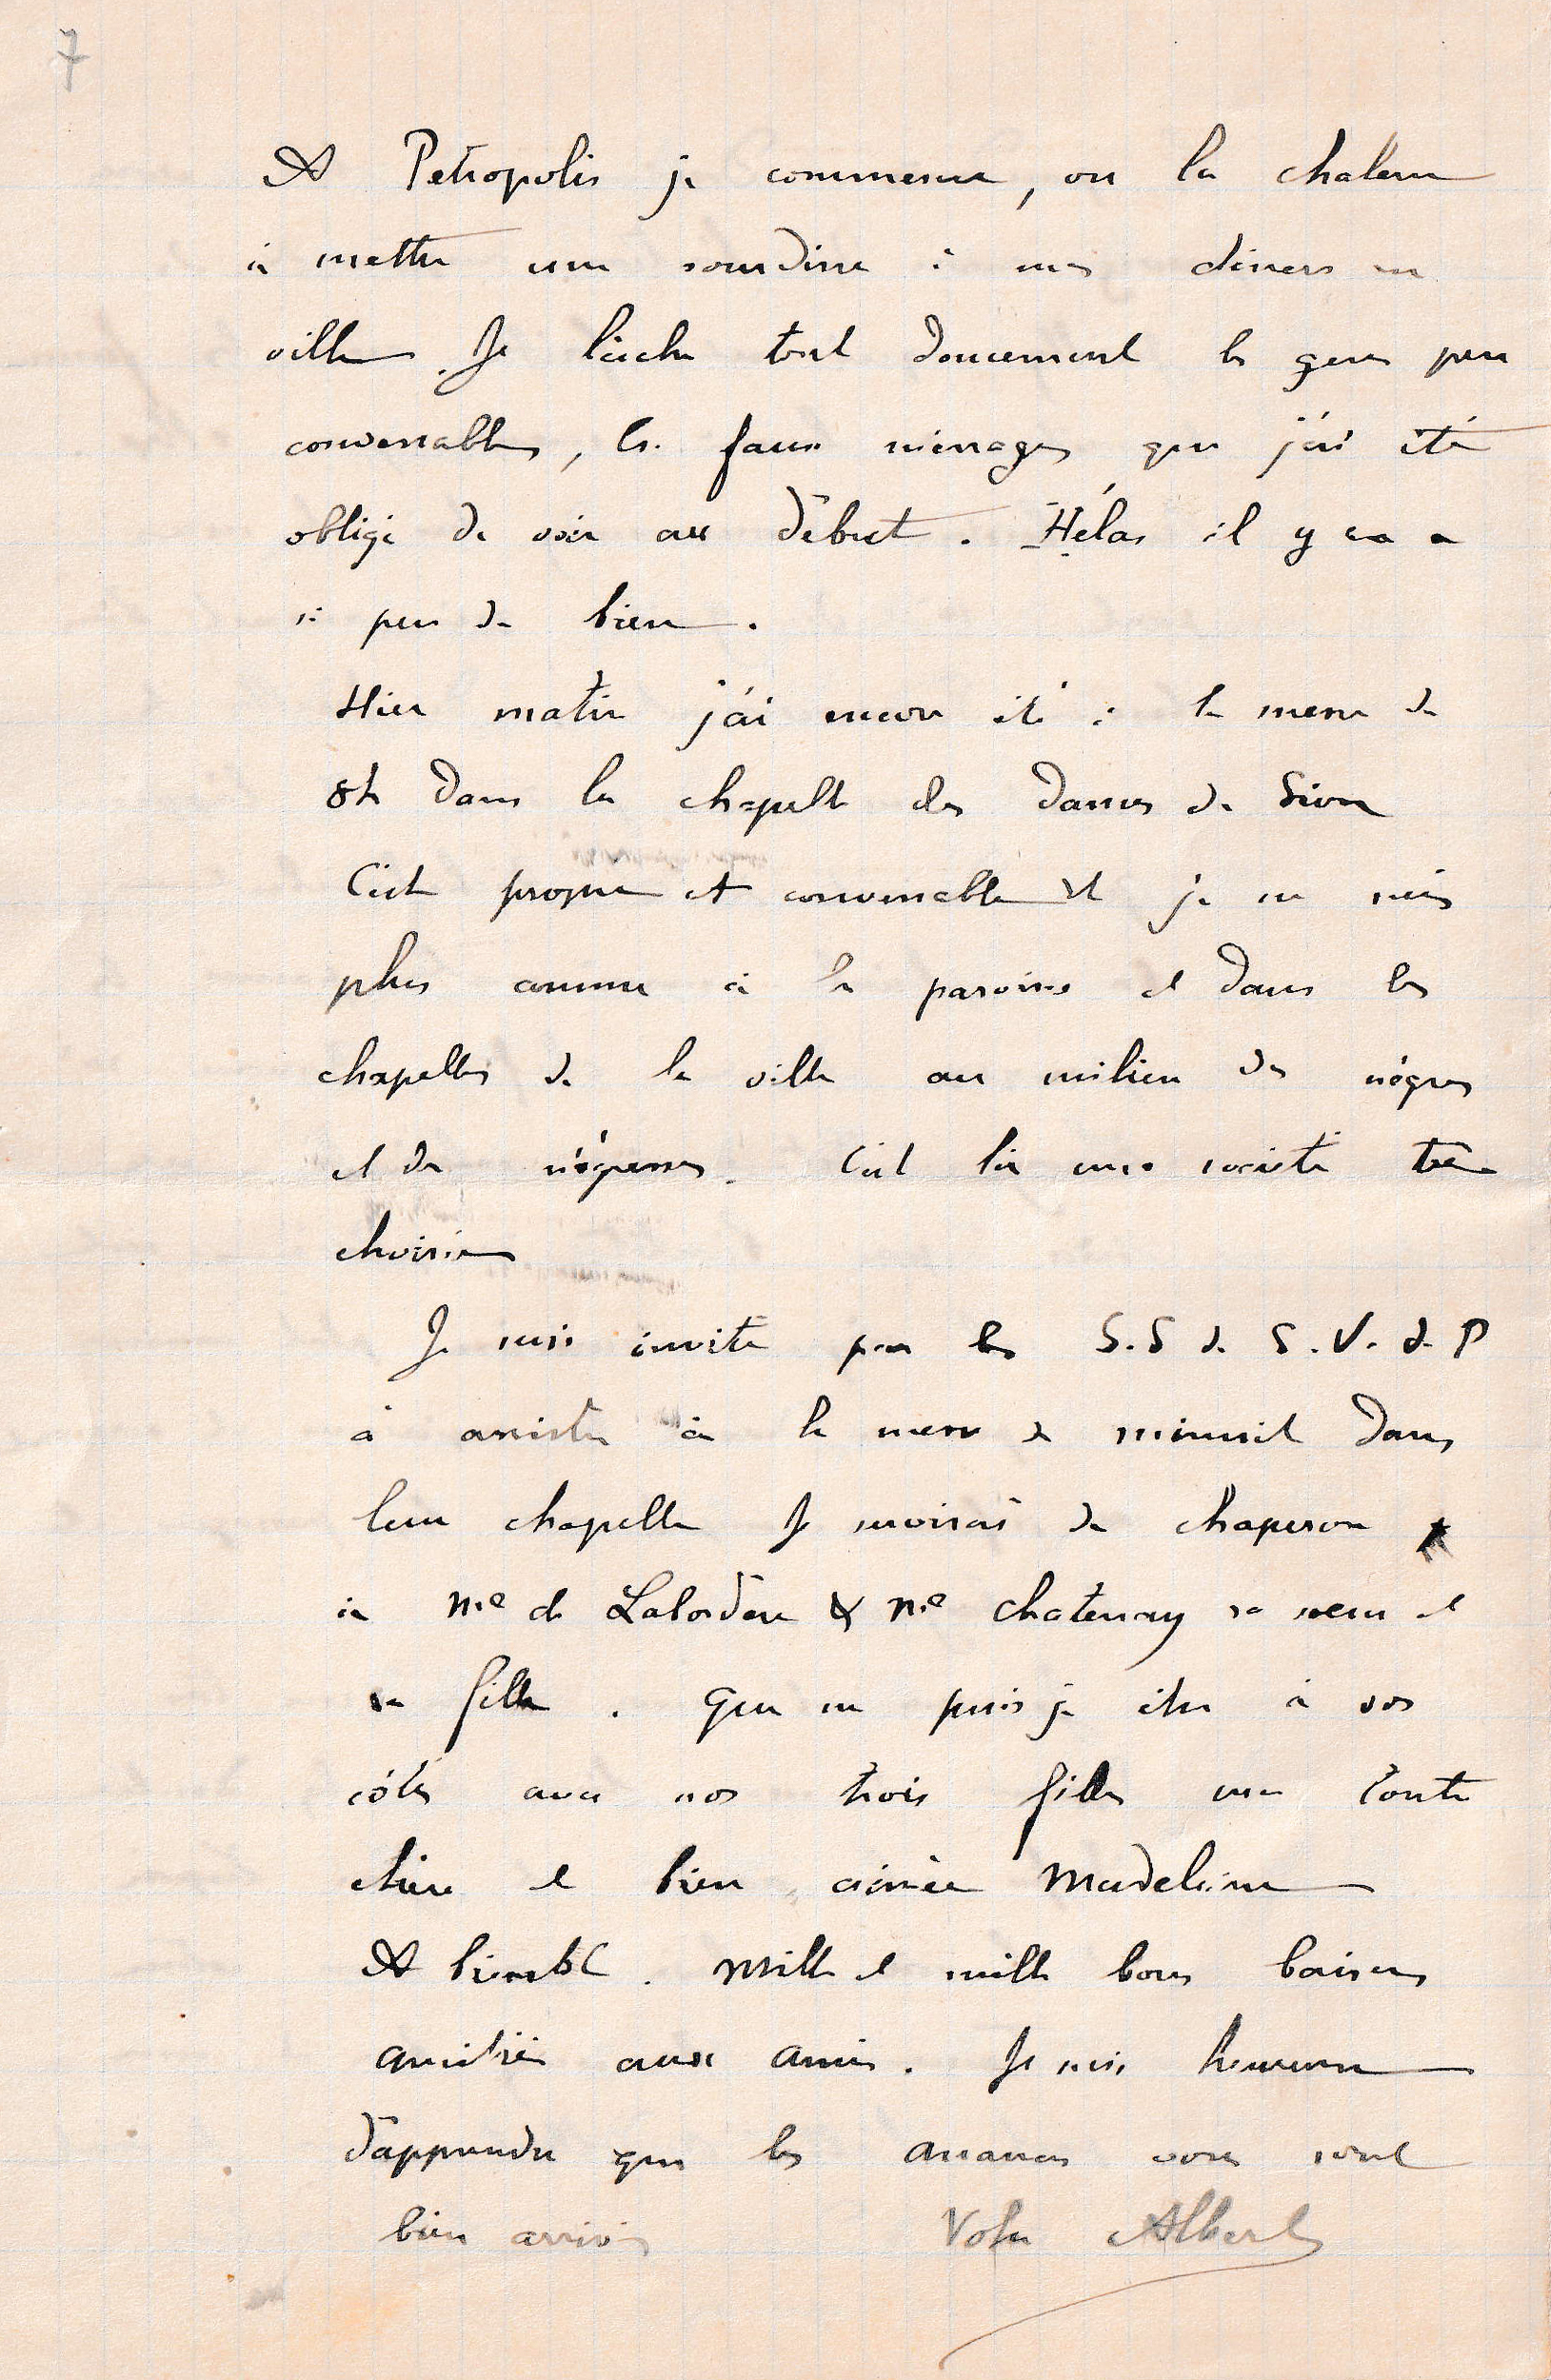 7
A Petropolis je commence, vu la chaleur
à mettre une sourdine à mes diners en
ville. Je lâche tout doucement les gens peu
convenables, les faux ménages que j'ai été
obligé de voir au début. Hélas il y en a
si peu de bien.
Hier matin j'ai encore été à la messe de
8h dans la chapelle des Dames de Sion
C'est propre et convenable et je ne suis
plus comme à la paroisse et dans les
chapelles de la ville au milieu des nègres
et des négresses. C'est là une société très
choisie
Je suis invité par les S.S de S.V. de P
à assister à la messe de minuit dans
leur chapelle Je servirai de chaperon
à Me de Labordère & Me Chatenay sa soeur et
sa fille. Que ne puis je être à vos
côtés avec nos trois filles ma toute
chère et bien aimée Madeleine
A bientôt. Mille et mille bons baisers
amitiés aux amis. Je suis heureux
d'apprendre que les ananas vous sont
bien arrivés Votre Albert